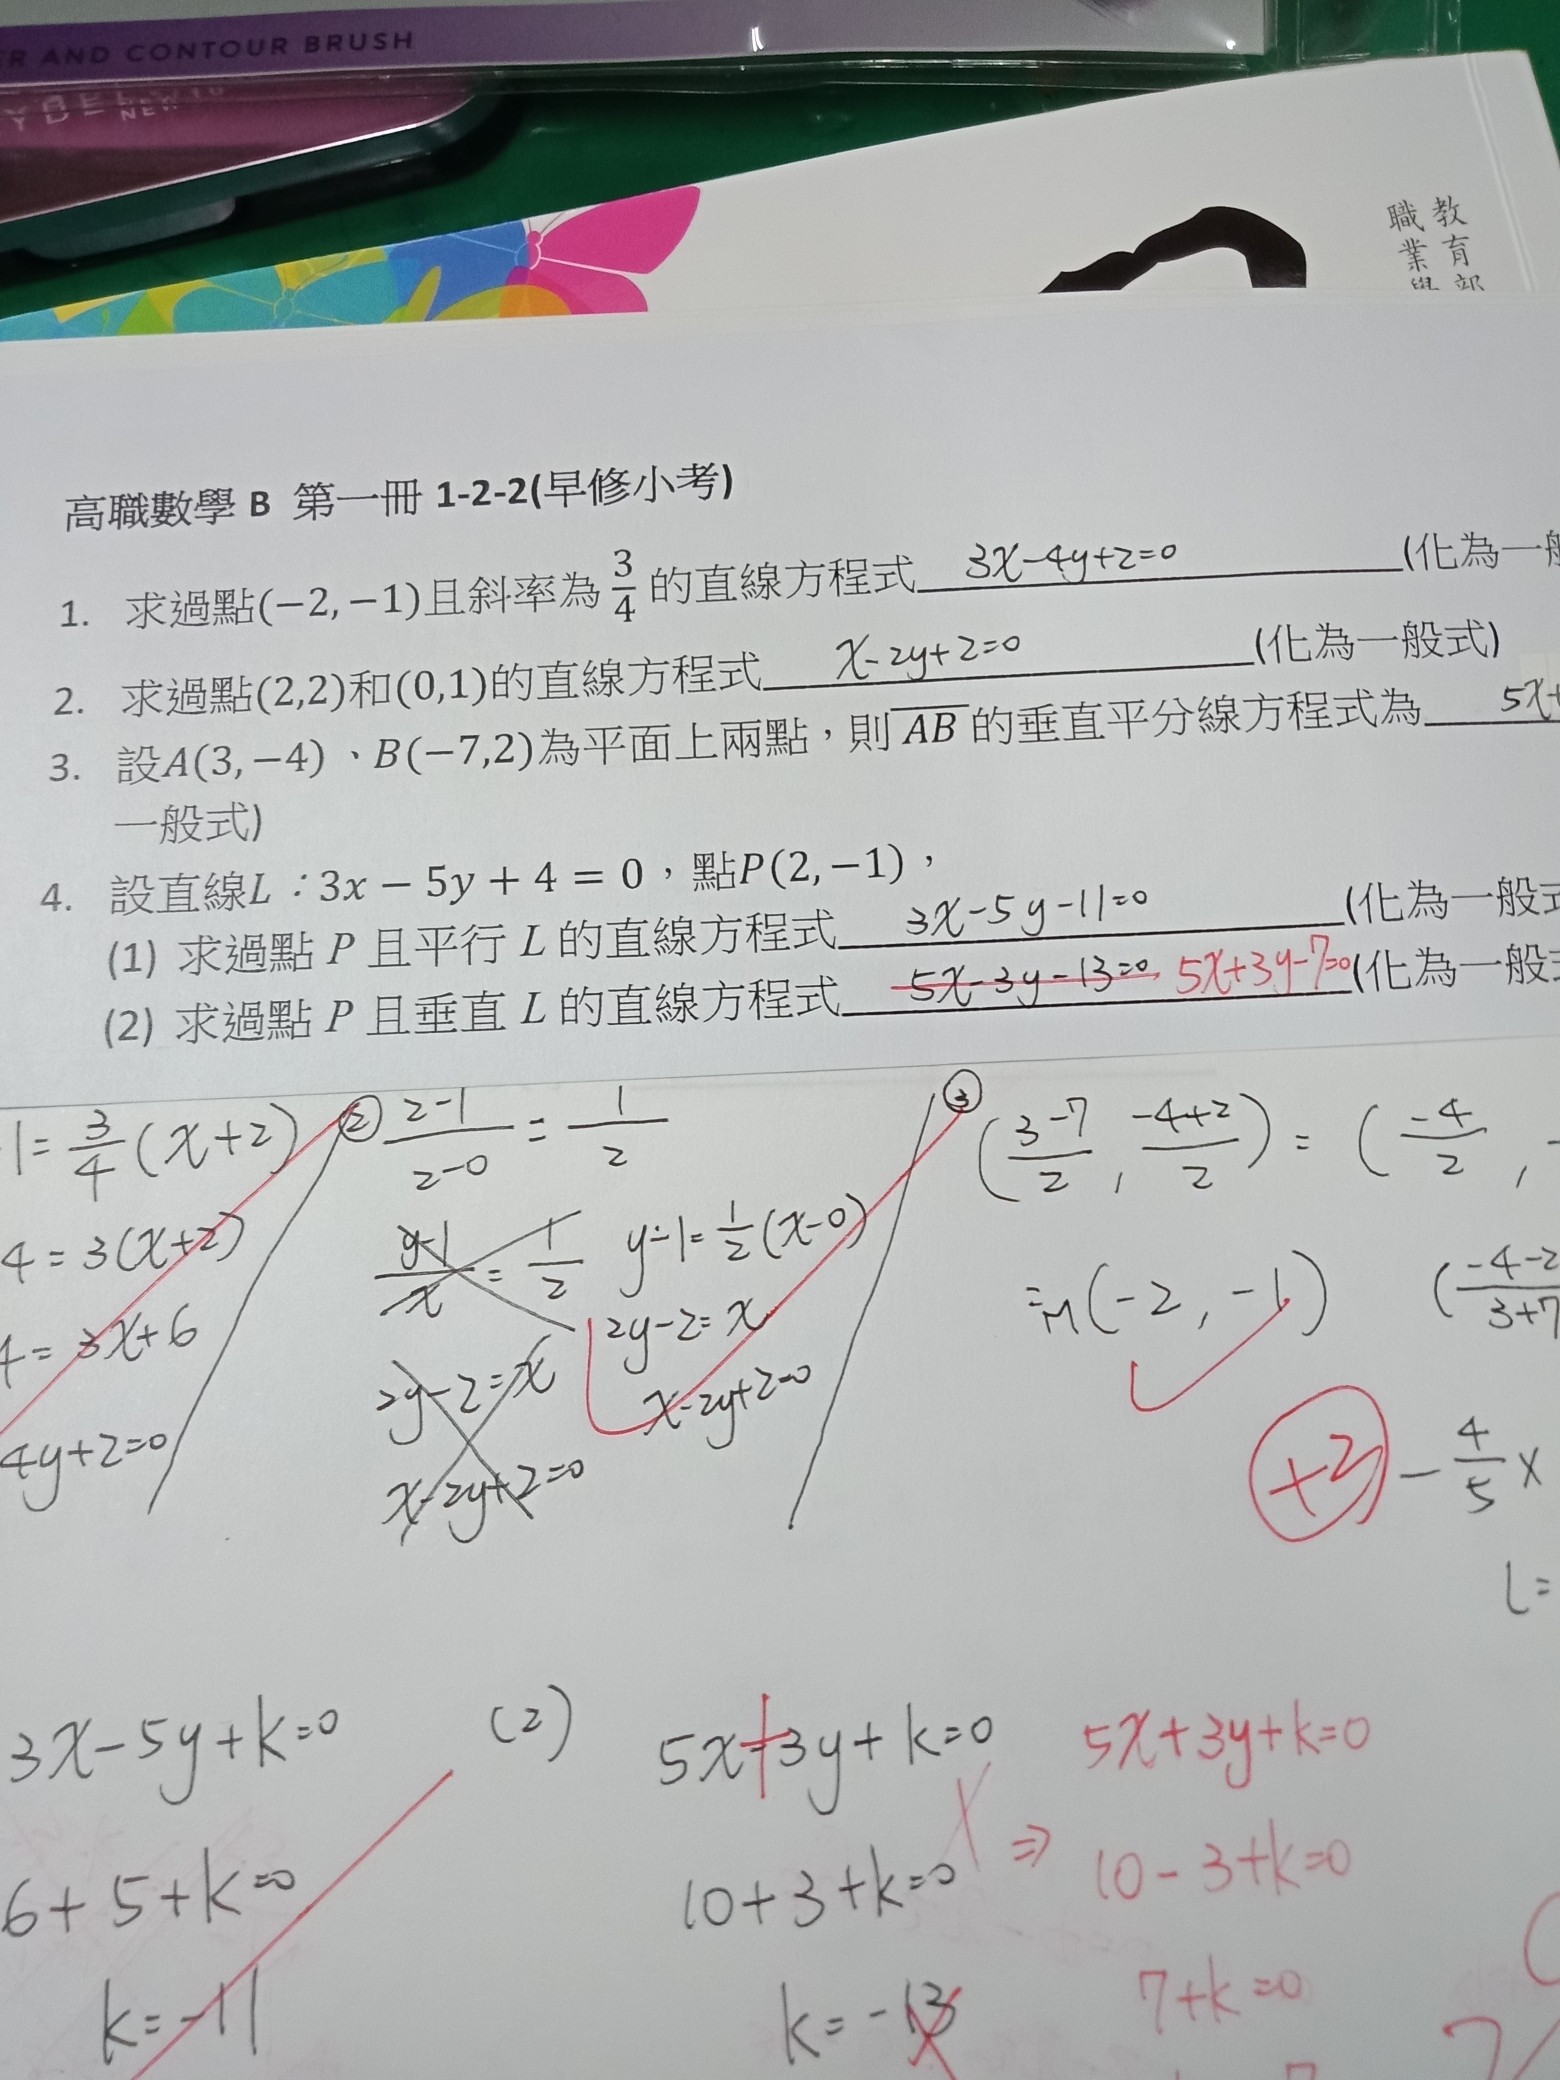 ER AND CONTOUR BRUSH
NEW
教育部
職業學
高職數學 B 第一冊 1-2-2(早修小考)
1. 求過點(−2,−1)且斜率為 3/4 的直線方程式 3x-4y+2=0 (化為一般
2. 求過點(2,2)和(0,1)的直線方程式 x-2y+2=0 (化為一般式)
3. 設A(3,−4)、B(−7,2)為平面上兩點，則AB的垂直平分線方程式為 5x+
一般式)
4. 設直線L：3x − 5y + 4 = 0，點P(2,−1)，
(1) 求過點 P 且平行 L 的直線方程式 3x-5y-11=0 (化為一般式
(2) 求過點 P 且垂直 L 的直線方程式 5x-3y-13=0 5x+3y-7=0 (化為一般式
1=3/4(x+2)
4=3(x+2)
4=3x+6
4y+2=0
② 2-1/2-0=1/2
y-1/x=1/2
2y-2=x
x-2y+2=0
y-1=1/2(x-0)
2y-2=x
x-2y+2=0
③ (3-7/2, -4+2/2)=(-4/2, -
=M(-2,-1) (-4-2/3+7
+2 -4/5x
L=
3x-5y+k=0
6+5+k=0
k=-11
(2) 5x-3y+k=0
10+3+k=0
k=-13
⇒ 5x+3y+k=0
10-3+k=0
7+k=0